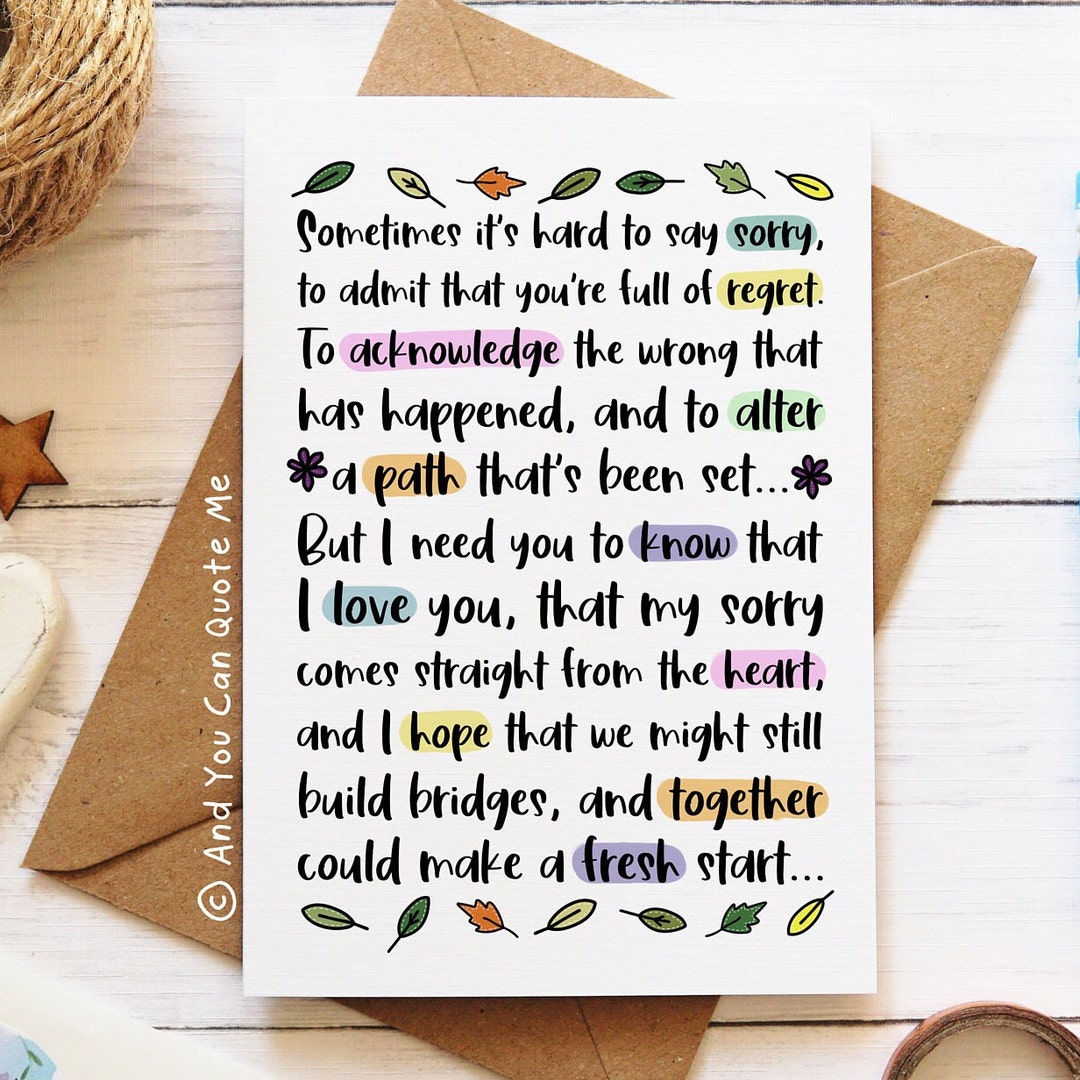 Sometimes it's hard to say sorry,
to admit that you're full of regret.
To acknowledge the wrong that
has happened, and to alter
a path that's been set...
But I need you to know that
I love you, that my sorry
comes straight from the heart,
and I hope that we might still
build bridges, and together
could make a fresh start...
© And You Can Quote Me